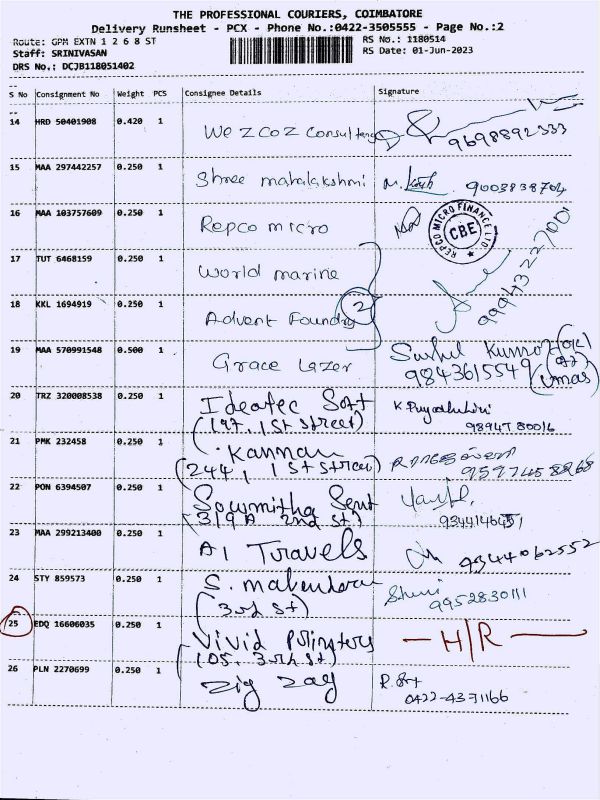 THE PROFESSIONAL COURIERS, COIMBATORE
Delivery Runsheet - PCX - Phone No.:0422-3505555 - Page No.:2
Route: GPM EXTN 1 2 6 8 ST RS No.: 1180514
Staff: SRINIVASAN RS Date: 01-Jun-2023
DRS No.: DCJB118051402
S No Consignment No Weight PCS Consignee Details Signature
14 HRD 50401908 0.420 1 We z coz consulteng 9698892333
15 MAA 297442257 0.250 1 Shree mahalakshmi 9003838704
16 MAA 103757609 0.250 1 Repco micro REPCO MICRO FINANCE LTD CBE
17 TUT 6468159 0.250 1 World marine
18 KKL 1694919 0.250 1 Advent Foundry 2 9994322700
19 MAA 570991548 0.500 1 Grace Lazer Sushil Kumar
9843615549
20 TRZ 320008538 0.250 1 Ideatec Soft
(197, 1st street) 98947 80016
21 PMK 232458 0.250 1 Kannan
(244, 1st street)
22 PON 6394507 0.250 1 Sowmitha Sent
319A 2nd st)
23 MAA 299213400 0.250 1 A1 Travels 9344062552
24 STY 859573 0.250 1 S. mahendran
(3rd st) 9952830111
25 EDQ 16606035 0.250 1 Vivid Printers — H/R —
(05, 3rd st)
26 PLN 2270699 0.250 1 Zig Zag
0422-4371166